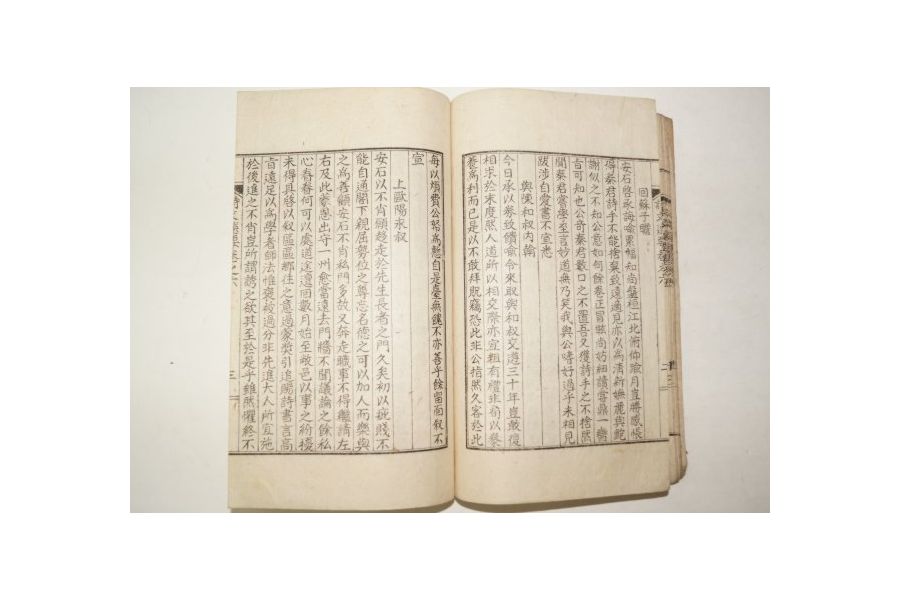 回蘇子瞻
安石啓承誨喩累幅知尙盤桓江北俯仰踰月豈勝感悵
得秦君詩手不能捨葉致遠適見亦以爲淸新嫵麗與鮑
謝似之不知公意如何餘卷正冒眩尙妨細讀嘗鼎一臠
旨可知也公奇秦君數口之不置吾又獲詩手之不捨然
聞秦君嘗學至言妙道無乃笑我與公嗜好過乎未相見
跋涉自愛書不宣悉
與陳和叔內翰
今日承以券致饋命令來取與和叔交遊三十年豈敢復
相求於末度然人道所以相交際亦宜粗有禮非苟以豢
養爲利而已是以不敢拜貺竊恐此非公指然久客於此
每以煩費公帑爲慙自是臺無餽不亦善乎餘留面敍不
宣
上歐陽永叔
安石以不肖願趨走於先生長者之門久矣初以疵賤不
能自通閤下親屈勢位之尊忘名德之可以加人而樂與
之爲善顧安石不肖私門多故又奔走職事不得繼請左
右及此蒙恩出守一州愈當遠去門牆不聞議論之餘私
心眷眷何可以處道途邅迴數月始至敝邑以事之紛擾
未得具啓以敍區區鄕往之意過蒙奬引追賜詩書言高
旨遠足以爲學者師法惟褒被過分非先進大人所宜施
於後進之不肖豈所謂誘之欲其至於是乎雖然懼終不
三